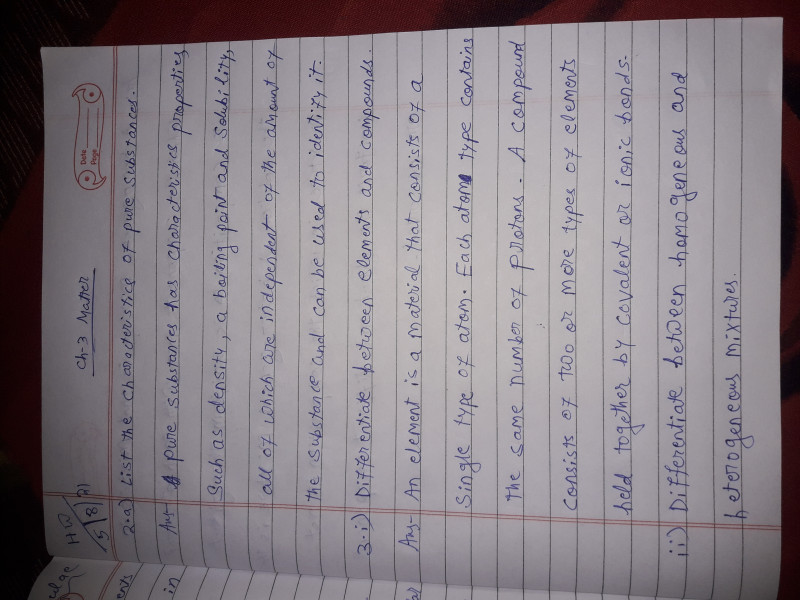 HW
5/8/21
Ch-3 Matter
Date
Page
2.a) List the Characteristics of pure Substances.
Ans- A pure Substances has Characteristics properties
Such as density, a boiling point and Solubility,
all of which are independent of the amount of
the Substance and can be used to identify it.
3.i) Differentiate between elements and compounds.
Ans- An element is a material that consists of a
Single type of atom. Each atom type contains
the same number of Protons. A compound
Consists of two or more types of elements
held together by covalent or ionic bonds.
ii) Differentiate between homogeneous and
heterogeneous mixtures.
in